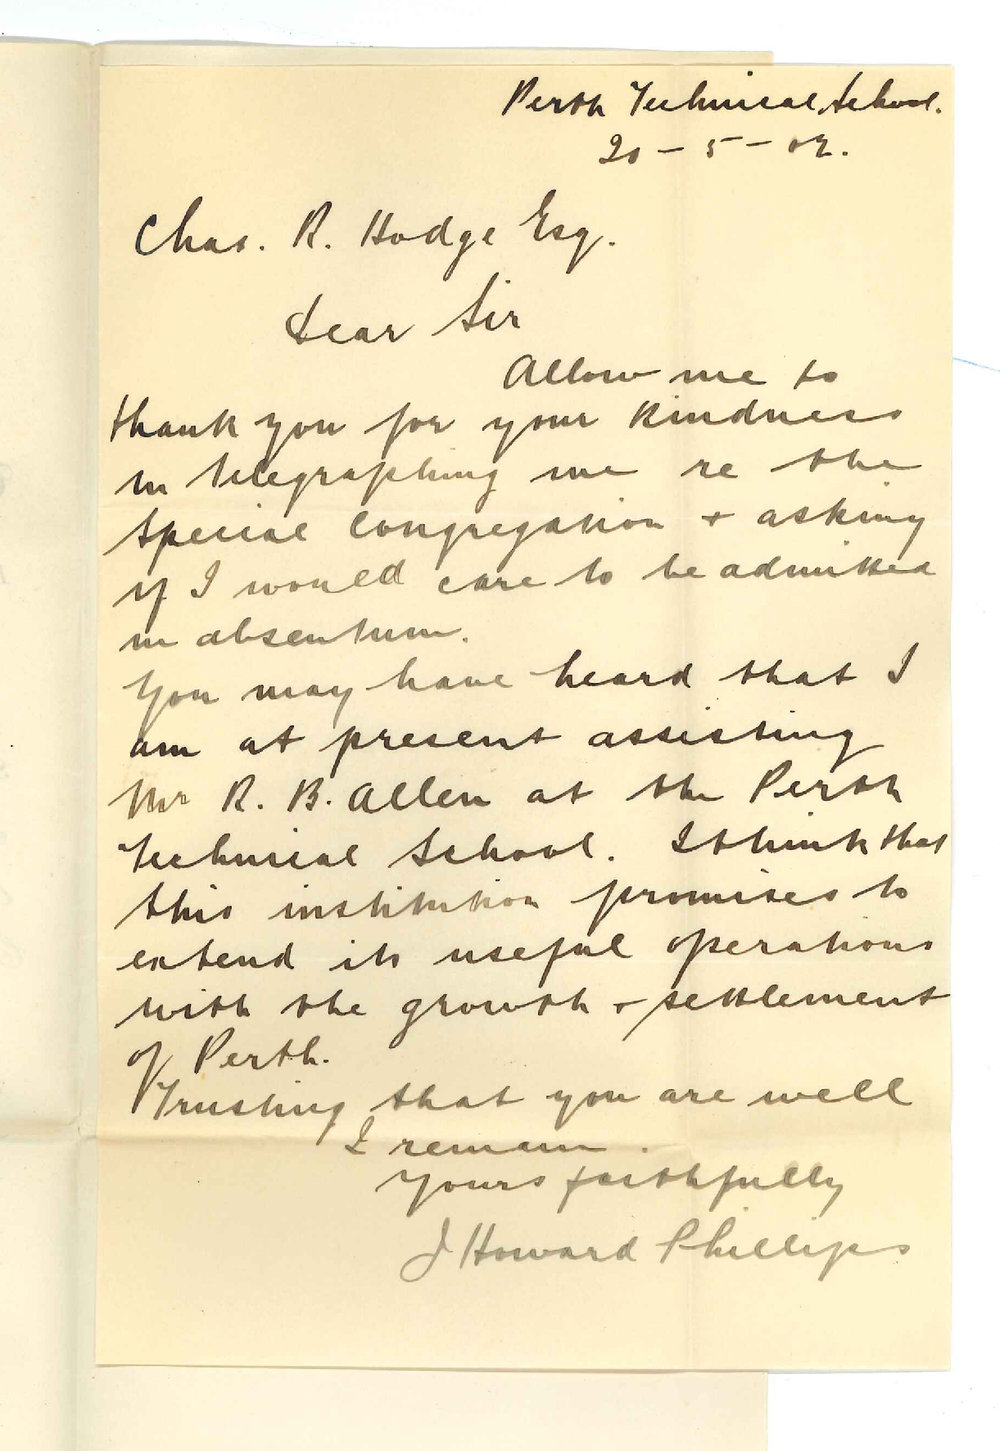 Perth Technical School.
20 - 5 - 02.
Chas. R. Hodge Esq.
Dear Sir
Allow me to
thank you for your kindness
in telegraphing me re the
special congregation + asking
if I would care to be admitted
in absentium.
You may have heard that I
am at present assisting
Mr R. B. Allen at the Perth
Technical School. I think that
this institution promises to
extend its useful operations
with the growth + settlement
of Perth.
Trusting that you are well
I remain.
Yours faithfully
J Howard Phillips